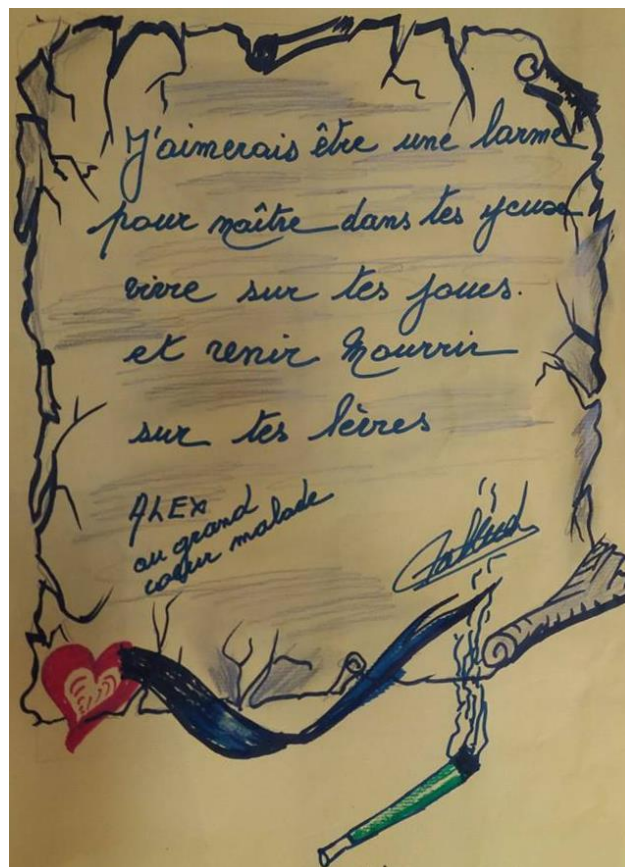 J'aimerais être une larme
pour naître dans tes yeux
vivre sur tes joues.
et venir Mourrir
sur tes lèvres
ALEX
au grand
coeur malade